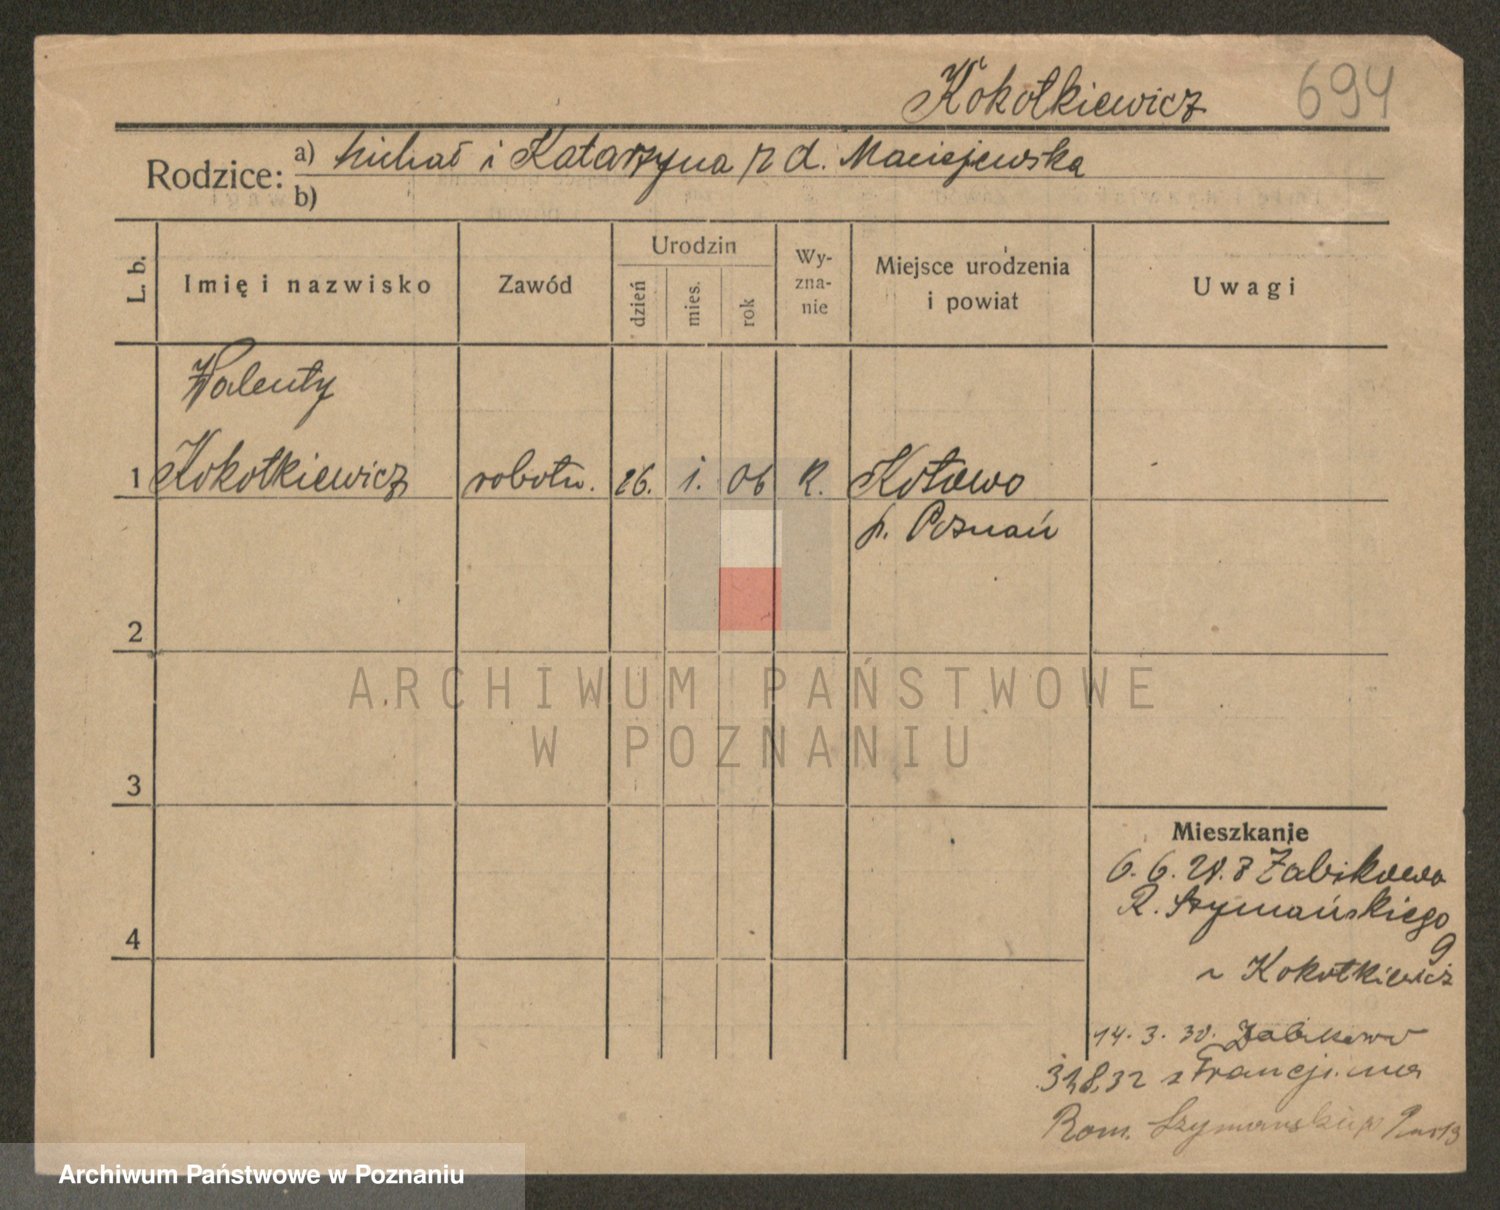 Kokotkiewicz 694
Rodzice: a) Michał i Katarzyna z d. Maciejewska
b)
L. b. Imię i nazwisko Zawód Urodzin dzień mies. rok Wy-zna-nie Miejsce urodzenia i powiat Uwagi
Walenty
1 Kokotkiewicz robotn. 26. 1. 06 R. Kotowo
p. Poznań
2
ARCHIWUM PAŃSTWOWE
W POZNANIU
3
Mieszkanie
6. 6. 28. z Żabikowa
R. Szymańskiego
4
9
Kokotkiewicz
14. 3. 30. Żabikowo
z Francji na
Rom. Szymańskiego
Archiwum Państwowe w Poznaniu